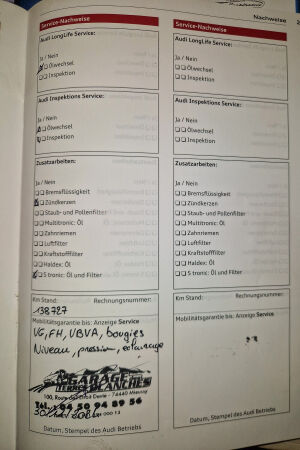 Nachweise
Service-Nachweise
Audi LongLife Service:
Ja / Nein
Ölwechsel
Inspektion
Audi Inspektions Service:
Ja / Nein
Ölwechsel
Inspektion
Zusatzarbeiten:
Ja / Nein
Bremsflüssigkeit
Zündkerzen
Staub- und Pollenfilter
Multitronic: Öl
Zahnriemen
Luftfilter
Kraftstofffilter
Haldex: Öl
S tronic: Öl und Filter
Km Stand: Rechnungsnummer:
138727
Mobilitätsgarantie bis: Anzeige Service
VG, FH, VBVA, bougies
Niveau, pression, eclairage
GARAGE
100, Route
74440 Mieussy
Tél. 04 50 94 89 56
Datum, Stempel des Audi Betriebs
Service-Nachweise
Audi LongLife Service:
Ja / Nein
Ölwechsel
Inspektion
Audi Inspektions Service:
Ja / Nein
Ölwechsel
Inspektion
Zusatzarbeiten:
Ja / Nein
Bremsflüssigkeit
Zündkerzen
Staub- und Pollenfilter
Multitronic: Öl
Zahnriemen
Luftfilter
Kraftstofffilter
Haldex: Öl
S tronic: Öl und Filter
Km Stand: Rechnungsnummer:
Mobilitätsgarantie bis: Anzeige Service
Datum, Stempel des Audi Betriebs